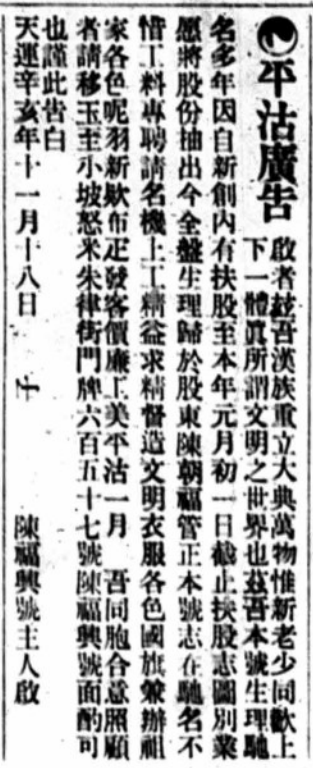 平沽廣告
啟者茲吾漢族重立大典萬物惟新老少同歡上
下一體眞所謂文明之世界也茲吾本號生理馳
名多年因自新創內有扶股至本年元月初一日截止挨股志圖別業
愿將股份抽出今全盤生理歸於股東陳朝福管正本號志在馳名不
惜工料專聘請名機上工精益求精督造文明衣服各色國旗兼辦祖
家各色呢羽新欵布疋發客價廉工美平沽一月 吾同胞合意照顧
者請移玉至小坡怒米朱律街門牌六百五十七號陳福興號面酌可
也謹此告白
天運辛亥年十一月十八日 陳福興號主人啟